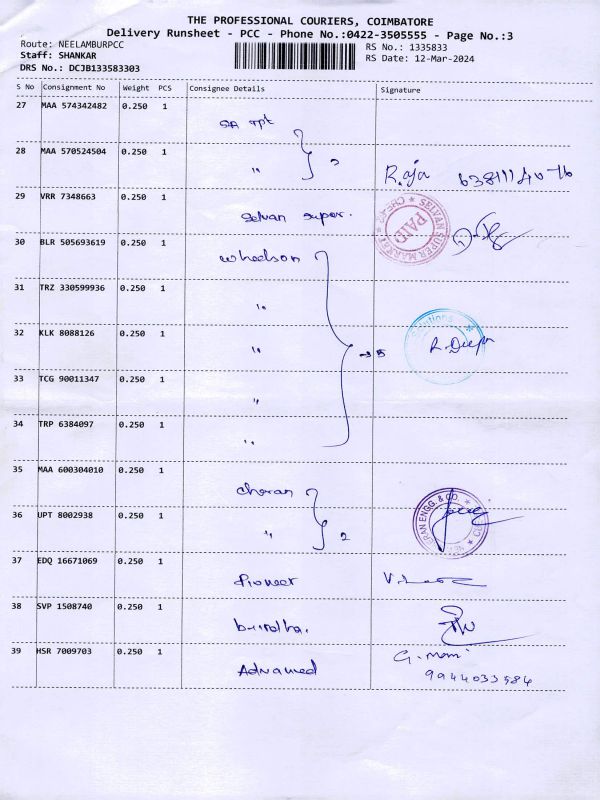 THE PROFESSIONAL COURIERS, COIMBATORE
Delivery Runsheet - PCC - Phone No.:0422-3505555 - Page No.:3
Route: NEELAMBURPCC
RS No.: 1335833
Staff: SHANKAR
RS Date: 12-Mar-2024
DRS No.: DCJB133583303
S No Consignment No Weight PCS Consignee Details Signature
27 MAA 574342482 0.250 1
SA Tpt
28 MAA 570524504 0.250 1
" 2 Raja
29 VRR 7348663 0.250 1
Selvan super.
SELVAN SUPER MARKET
PAID
30 BLR 505693619 0.250 1
Wheelson
31 TRZ 330599936 0.250 1
"
32 KLK 8088126 0.250 1
" 5 R. Deepa
33 TCG 90011347 0.250 1
"
34 TRP 6384097 0.250 1
"
35 MAA 600304010 0.250 1
Cheran
36 UPT 8002938 0.250 1
" 2
RAN ENGG. & CO.
37 EDQ 16671069 0.250 1
Pioneer
38 SVP 1508740 0.250 1
39 HSR 7009703 0.250 1
G. Mani
9944033584